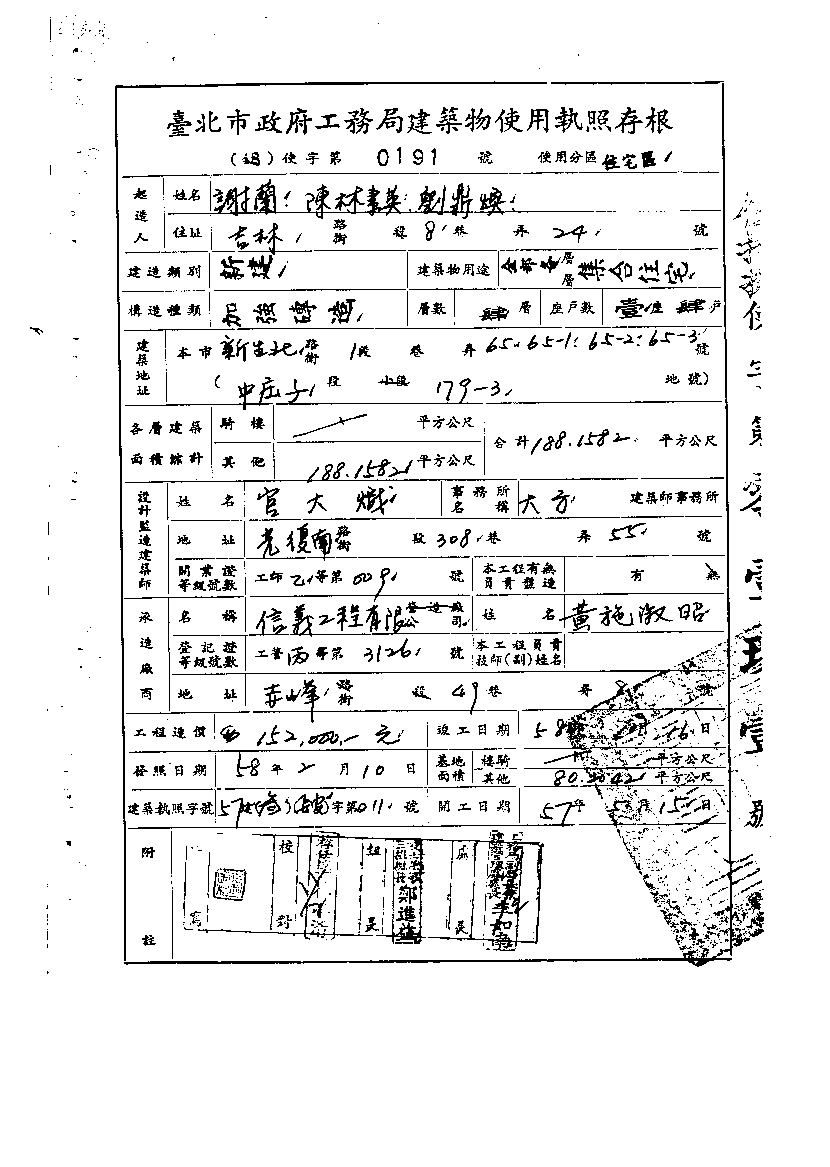 臺北市政府工務局建築物使用執照存根
使字第 0191 號 使用分區 住宅區
起造人 姓名 謝蘭 陳林 英 劉鼎
住址 吉林 路街 段 8 巷 弄 24 號
建造類別 新建 建築物用途 全部各層層集合住宅
構造種類 加強磚造 層數 肆層 座戶數 壹座肆戶
建築地址 本市 新生北 路街 1段 巷 弄 65.65-1:65-2:65-3 號
(中庄子 段 小段 179-3 地號)
各層建築面積總計 騎樓 平方公尺 合計 188.1582 平方公尺
其他 188.1582 平方公尺
設計監造建築師 姓名 官大熾 事務所名稱 大方 建築師事務所
地址 光復南 路街 段 308 巷 弄 55 號
開業證等級號數 工師 乙 等第 009 號 本工程有無負責監造 有 無
承造廠商 名稱 信義工程有限 營造廠公司 姓名 黃施淑昭
登記證等級號數 工營 丙 等第 3126 號 本工程負責技師(副)姓名
地址 赤峰 路街 段 49 巷 弄 8 號
工程造價 152,000,- 元 竣工日期 58 日
發照日期 58 年 2 月 10 日 基地面積 騎樓 平方公尺
其他 80. 平方公尺
建築執照字號 57建 字第011 號 開工日期 57 年 5 月 15 日
附註
校對 組長 鄭進 長